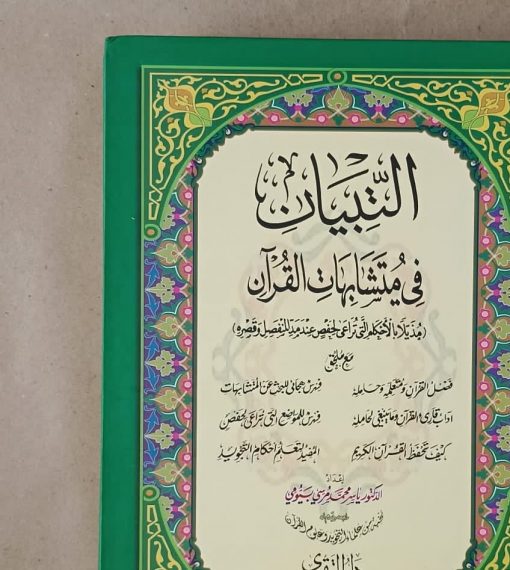 التِّبيَان
في مُتَشَابِهَاتِ القُرآن
(مُذَيَّلًا بالأحكام التي تُراعى لحفص عند مد المنفصل وقصره)
مع ملحق
فضل القرآن ومتعلمه وحامله
فهرس هجائي للبحث عن المتشابهات
آداب قارئ القرآن وما ينبغي لحامله
فهرس للمواضع التي تراعى لحفص
كيف تحفظ القرآن الكريم
المفيد لتعلم أحكام التجويد
إعداد
الدكتور ياسر محمد مرسي بيومي
علماء التجويد وعلوم القرآن
دار التقوى